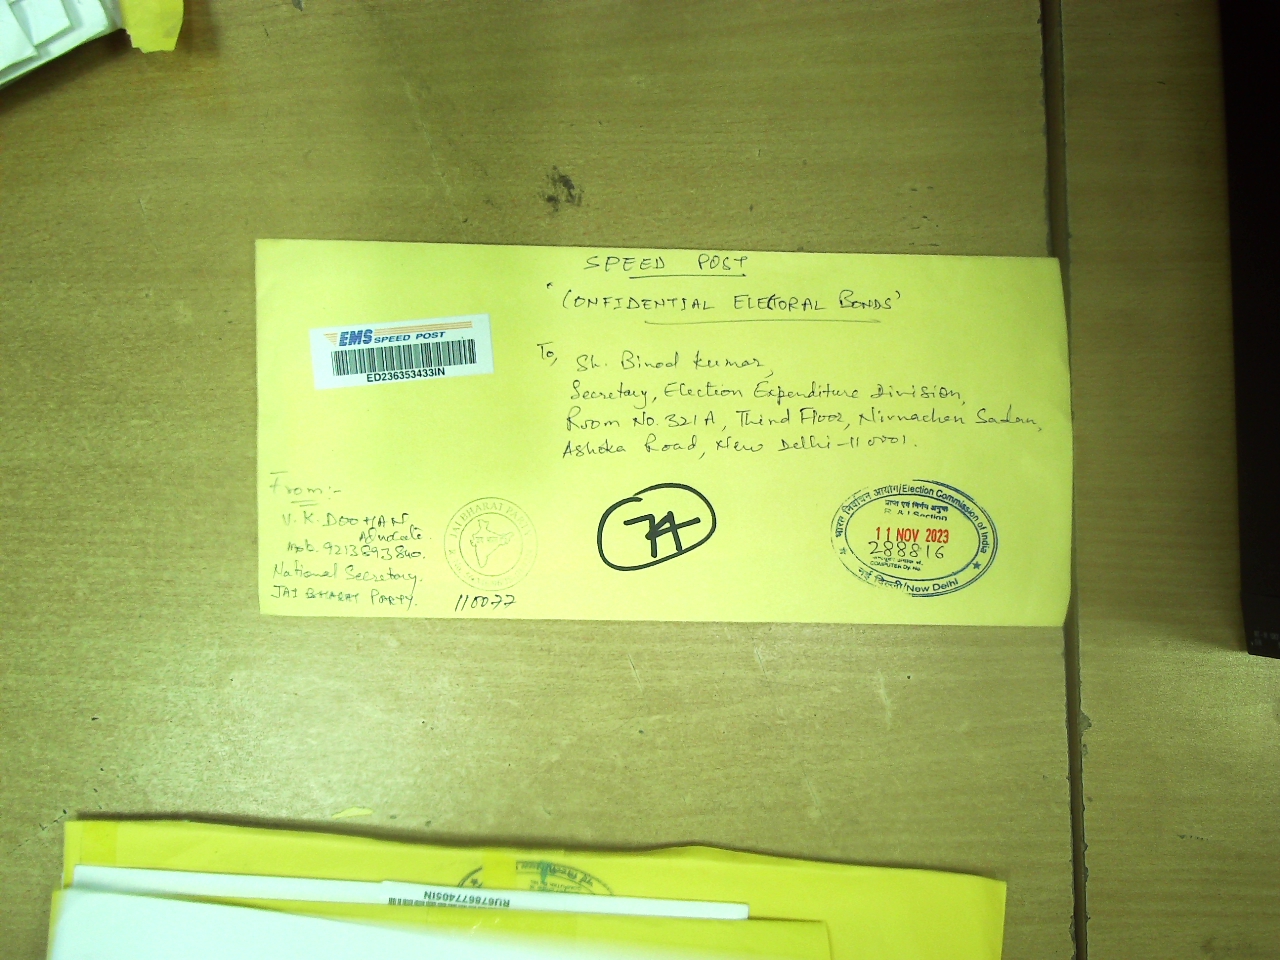 SPEED POST
'CONFIDENTIAL ELECTORAL BONDS'
EMS SPEED POST
ED236353433IN
To,
Sh. Binod Kumar,
Secretary, Election Expenditure Division,
Room No. 321A, Third Floor, Nirvachan Sadan,
Ashoka Road, New Delhi-110001.
From:-
V. K. DOOHAN
Advocate.
Mob. 9213893840.
National Secretary.
JAI BHARAT PARTY.
JAI BHARAT PARTY
110077
74
भारत निर्वाचन आयोग/Election Commission of India
R & I Section
11 NOV 2023
288816
COMPUTER Dy. No.
नई दिल्ली/New Delhi
RU678677405IN